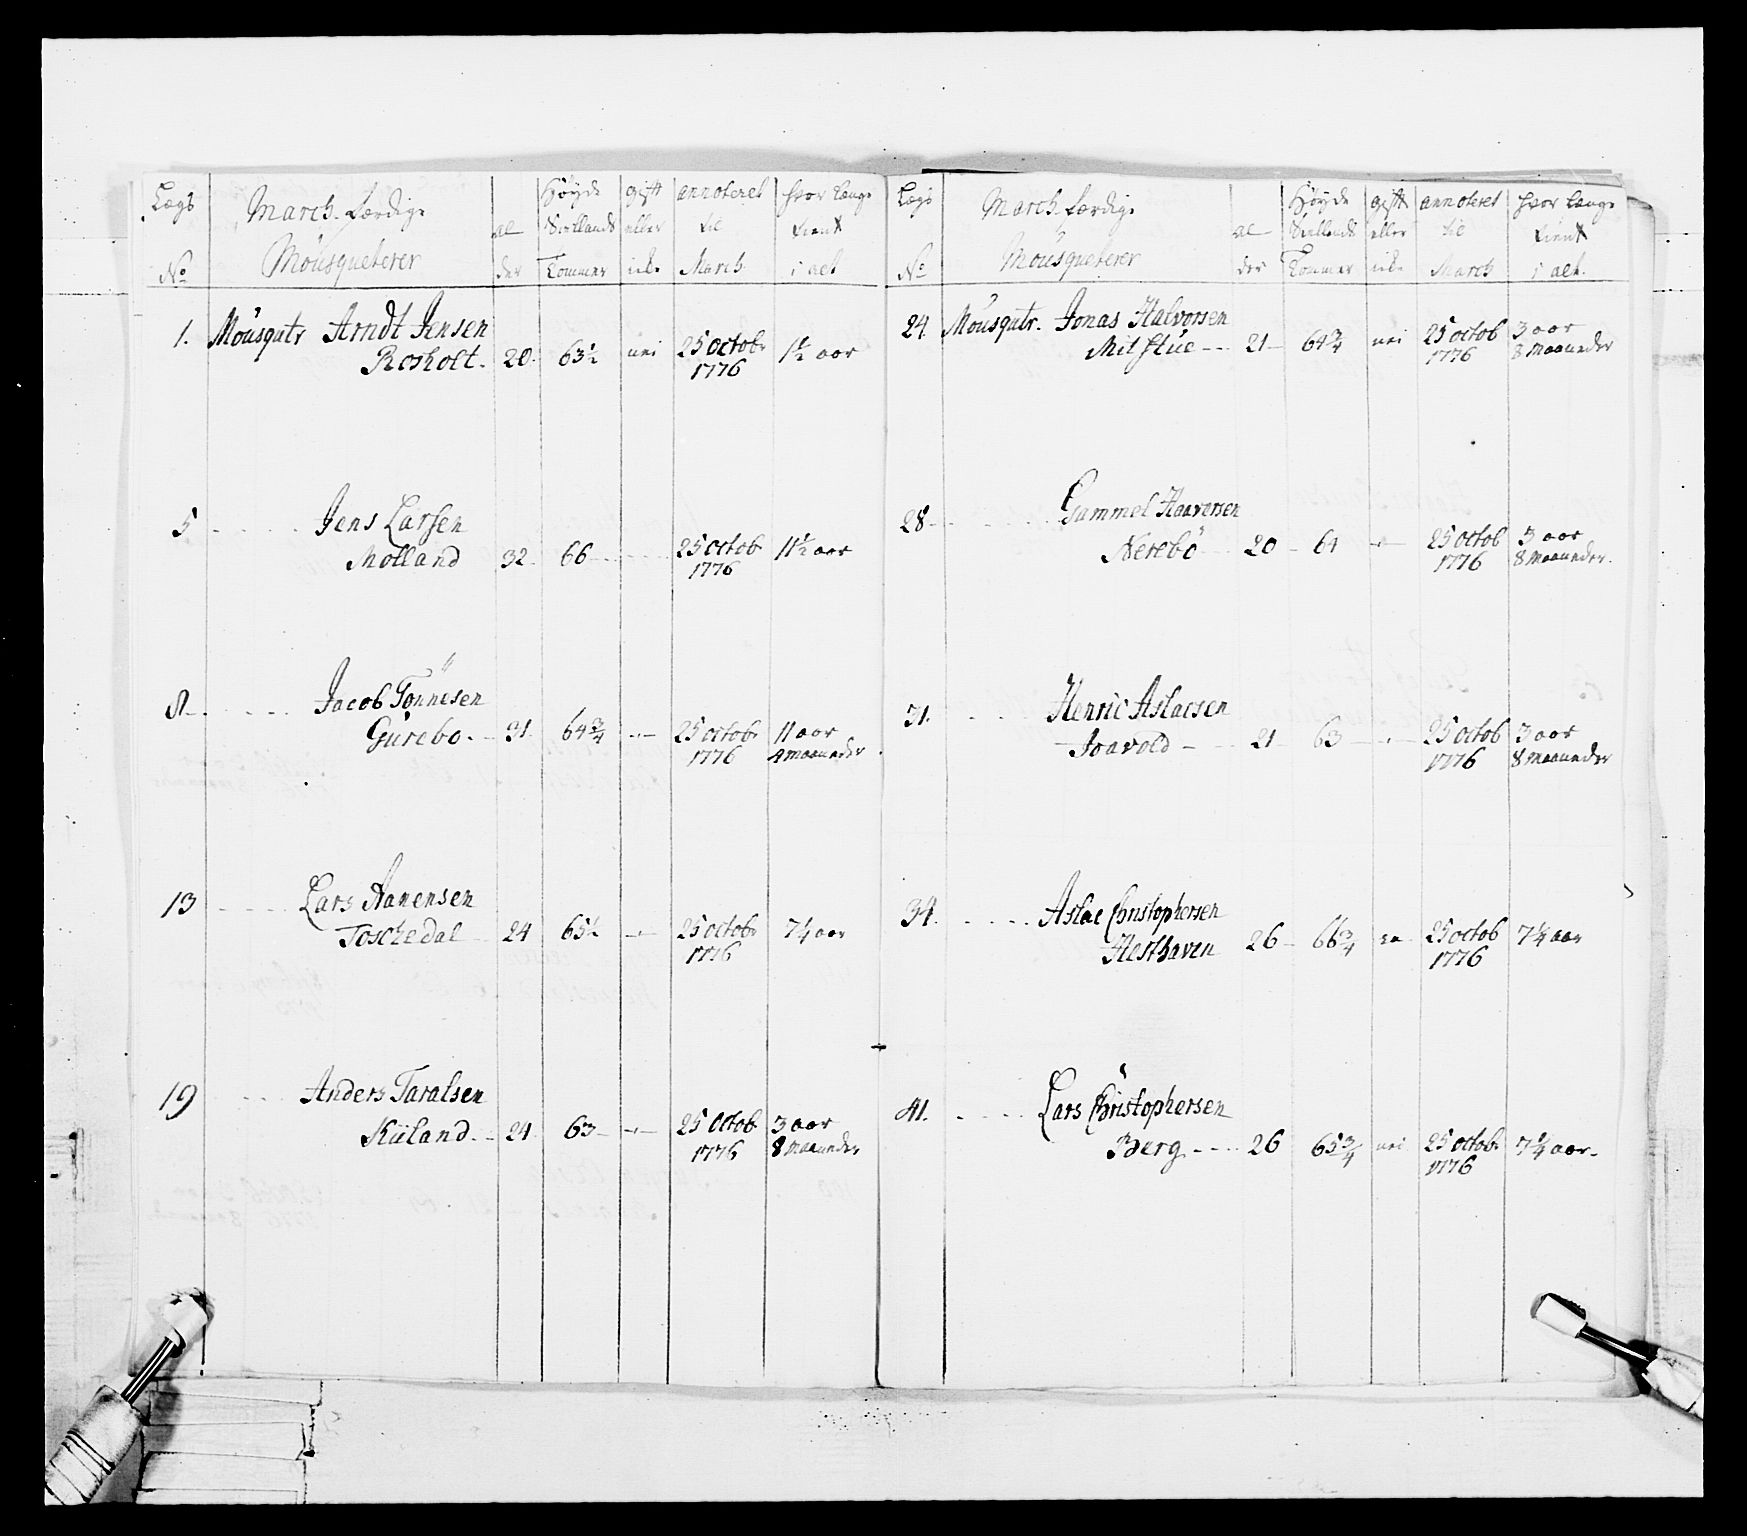 Lægs No
March færdige Mousqueterer
alder
Höyde Siellands Tommer
gift eller icke
annoteret til March
hvor længe tient i alt
1. Mousqtr Arndt Jensen
Rosholt. 20. 63½ nei 25 octobr 1776 1½ aar
5 Jens Larsen
Molland 32. 66 25 octob 1776 11½ aar
8. Jacob Tönnesen
Gurebo. 31. 64¾ 25 octobr 1776 11 aar 4 maaneder
13 Lars Aanensen
Toschedal 24 65½ 25 octobr 1776 7¼ aar
19 Anders Taralsen
Kiiland. 24 63 25 octob 1776 3 aar 8 maaneder
Lægs No
March færdige Mousqueterer
alder
Höyde Siellands Tommer
gift eller icke
annoteret til March
hvor længe tient i alt.
24. Mousqtr. Jonas Halvorsen
Mitstue 21 64¾ nei 25 octob 1776 3 aar 8 maaneder
28 Gammel Haaversen
Nerebö 20 61 25 octob 1776 3 aar 8 maaneder.
31. Henric Aslacsen
Joavold 21 63 25 octob 1776 3 aar 8 maaneder
34. Aslac Christophersen
Hesthaven 26 66¾ 25 octob 1776 7¼ aar
41. Lars Christophersen
Berg 26 65¾ nei 25 octob. 1776 7¼ aar.